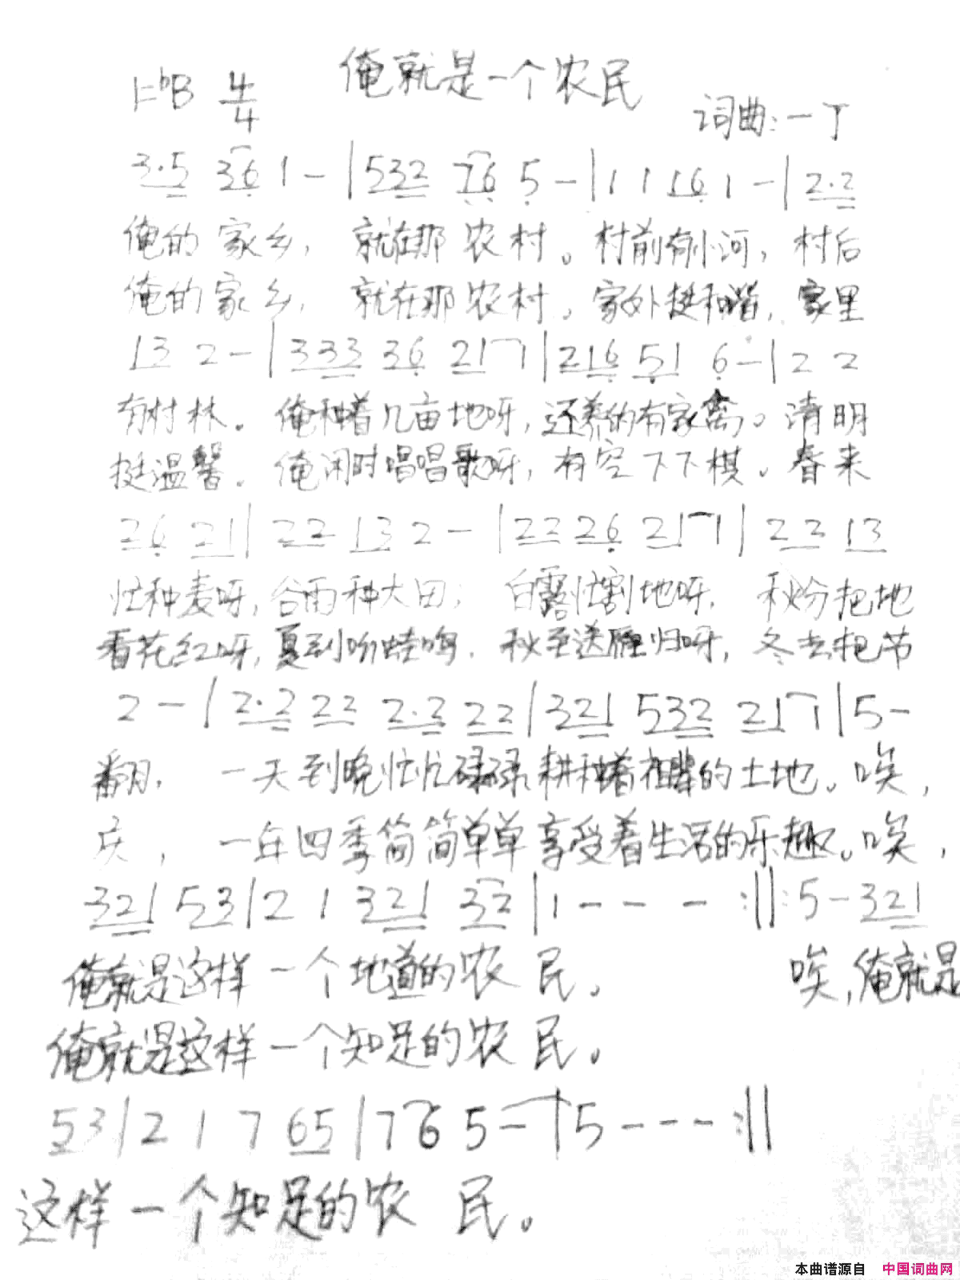 俺就是一个农民
1=bB 4/4
词曲:一丁
3·5 36 1 - | 532 76 5 - | 1 1 16 1 - | 2·2
俺的家乡, 就在那农村。村前有小河, 村后
俺的家乡, 就在那农村。家外挺和谐, 家里
13 2 - | 333 36 21 1 | 216 51 6 - | 2 2
有村林。俺种着几亩地呀, 还养的有家禽。清明
挺温馨。俺闲时唱唱歌呀, 有空下下棋。春来
26 21 | 22 13 2 - | 22 26 21 1 | 22 13
忙种麦呀, 谷雨种大田; 白露忙割地呀, 秋分把地
看花红呀, 夏到吩蛙鸣. 秋至送雁归呀, 冬去把节
2 - | 2·2 22 2·2 22 | 321 532 21 1 | 5 -
翻, 一天到晚忙忙碌碌耕种着祖辈的土地。唉,
庆, 一年四季简简单单享受着生活的乐趣。唉,
321 53 | 2 1 321 32 | 1 - - - :||: 5 - 321
俺就是这样一个地道的农民。 唉,俺就是
俺就是这样一个知足的农民。
53 | 2 1 7 65 | 7 6 5 - | 5 - - - :||
这样一个知足的农民。
本曲谱源自 中国词曲网